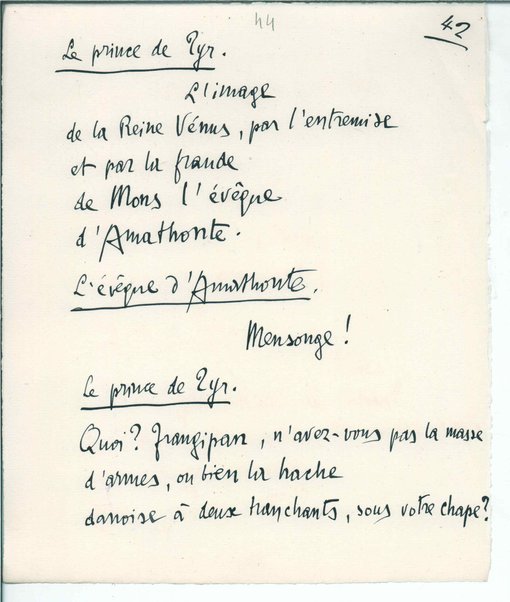 44
42
Le prince de Tyr.
L'image
de la Reine Vénus, par l'entremise
et par la fraude
de Mons l'évêque
d'Amathonte.
L'évêque d'Amathonte.
Mensonge !
Le prince de Tyr.
Quoi ? Frangipan, n'avez-vous pas la masse
d'armes, ou bien la hache
danoise à deux tranchants, sous votre chape ?